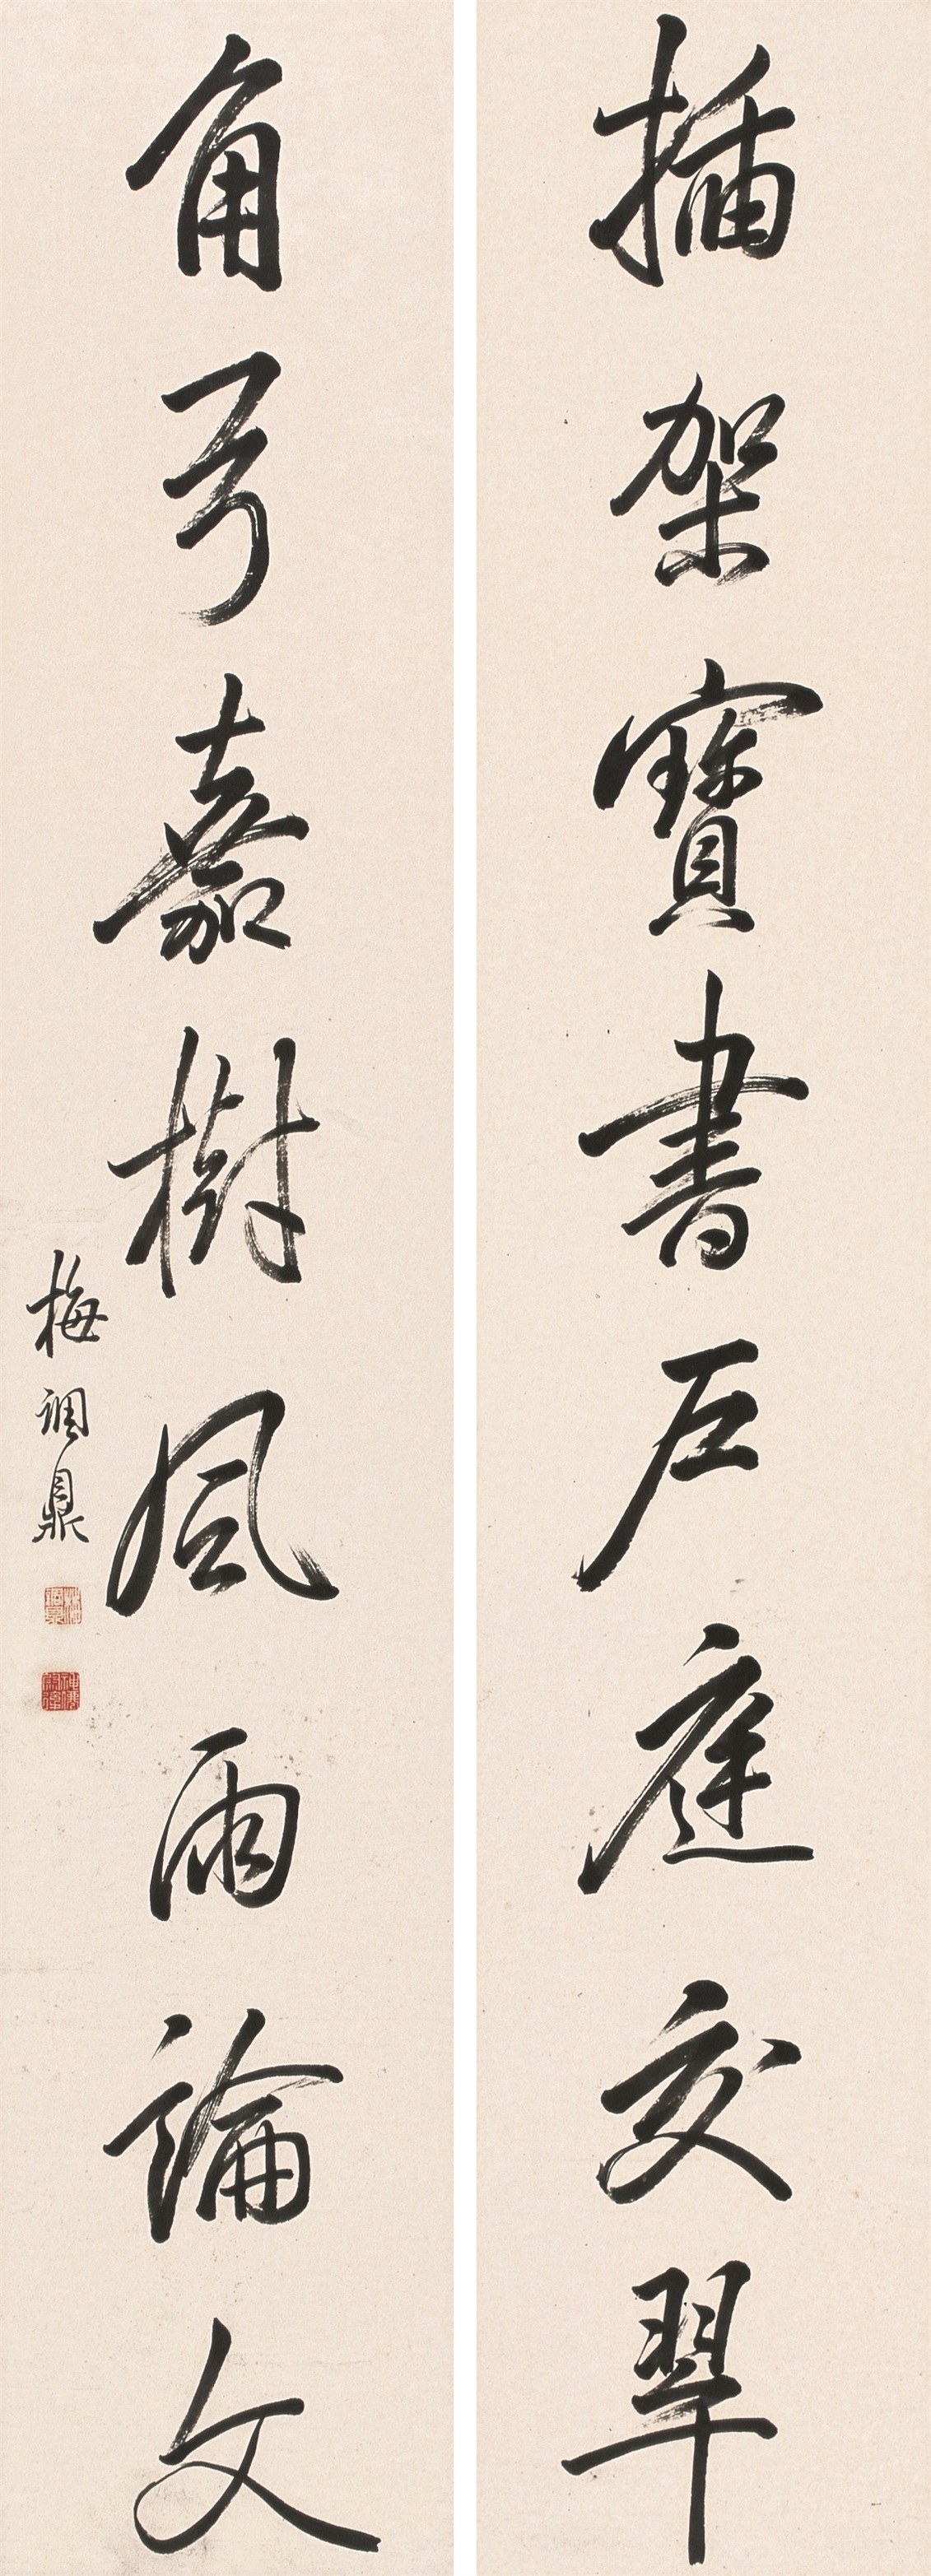 插架寶書戶庭交翠
角弓嘉樹風雨論文
梅調鼎